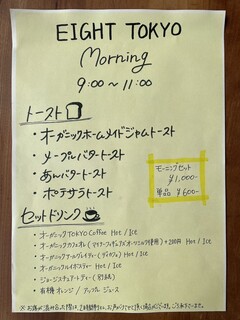 EIGHT TOKYO
Morning
9:00〜11:00
トースト
・オーガニックホームメイドジャムトースト
・メープルバタートースト
・あんバタートースト
・ポテサラトースト
モーニングセット
¥1,000-
単品 ¥600-
セットドリンク
・オーガニックTOKYO Coffee Hot / Ice
・オーガニックカフェオレ +200円 Hot / Ice
・オーガニックアールグレイティー(デカフェ) Hot / Ice
・オーガニックルイボスティー Hot / Ice
・ジョージスチュアートティー
・有機オレンジ / アップル ジュース